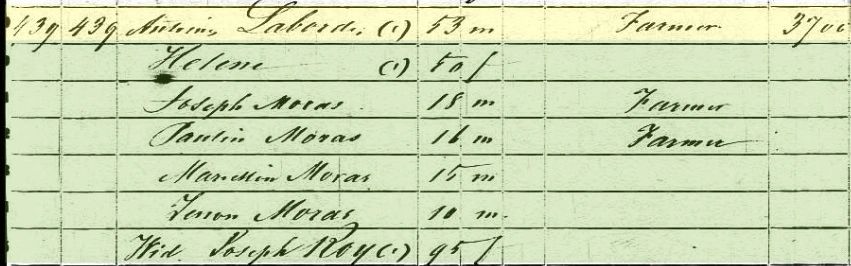 439 439 Antoine Laborde (1) 53 m Farmer 3700
Helene (1) 50 f
Joseph Moras 18 m Farmer
Paulin Moras 16 m Farmer
Marcellin Moras 15 m
Zenon Moras 10 m
Wid. Joseph Roy (1) 95 f